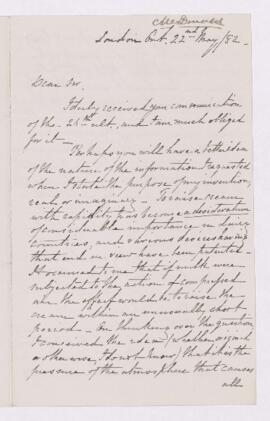 London Ont. 22nd May/82.
Dear Sir.
I duly received your communication
of the 24th ult, and am much obliged
for it —
Perhaps you will have a better idea
of the nature of the information I requested
when I state the purpose of my invention,
real or imaginary — To raise cream
with rapidity has become a desideratum
of considerable importance in dairy
countries, and various devices having
that end in view have been patented.
It occurred to me that if milk were
subjected to the action of compressed
air the effect would be to raise the
cream within an unusually short
period — On thinking over the question
I conceived the idea (whether original
or otherwise, I do not know) that it is the
pressure of the atmosphere that causes
all